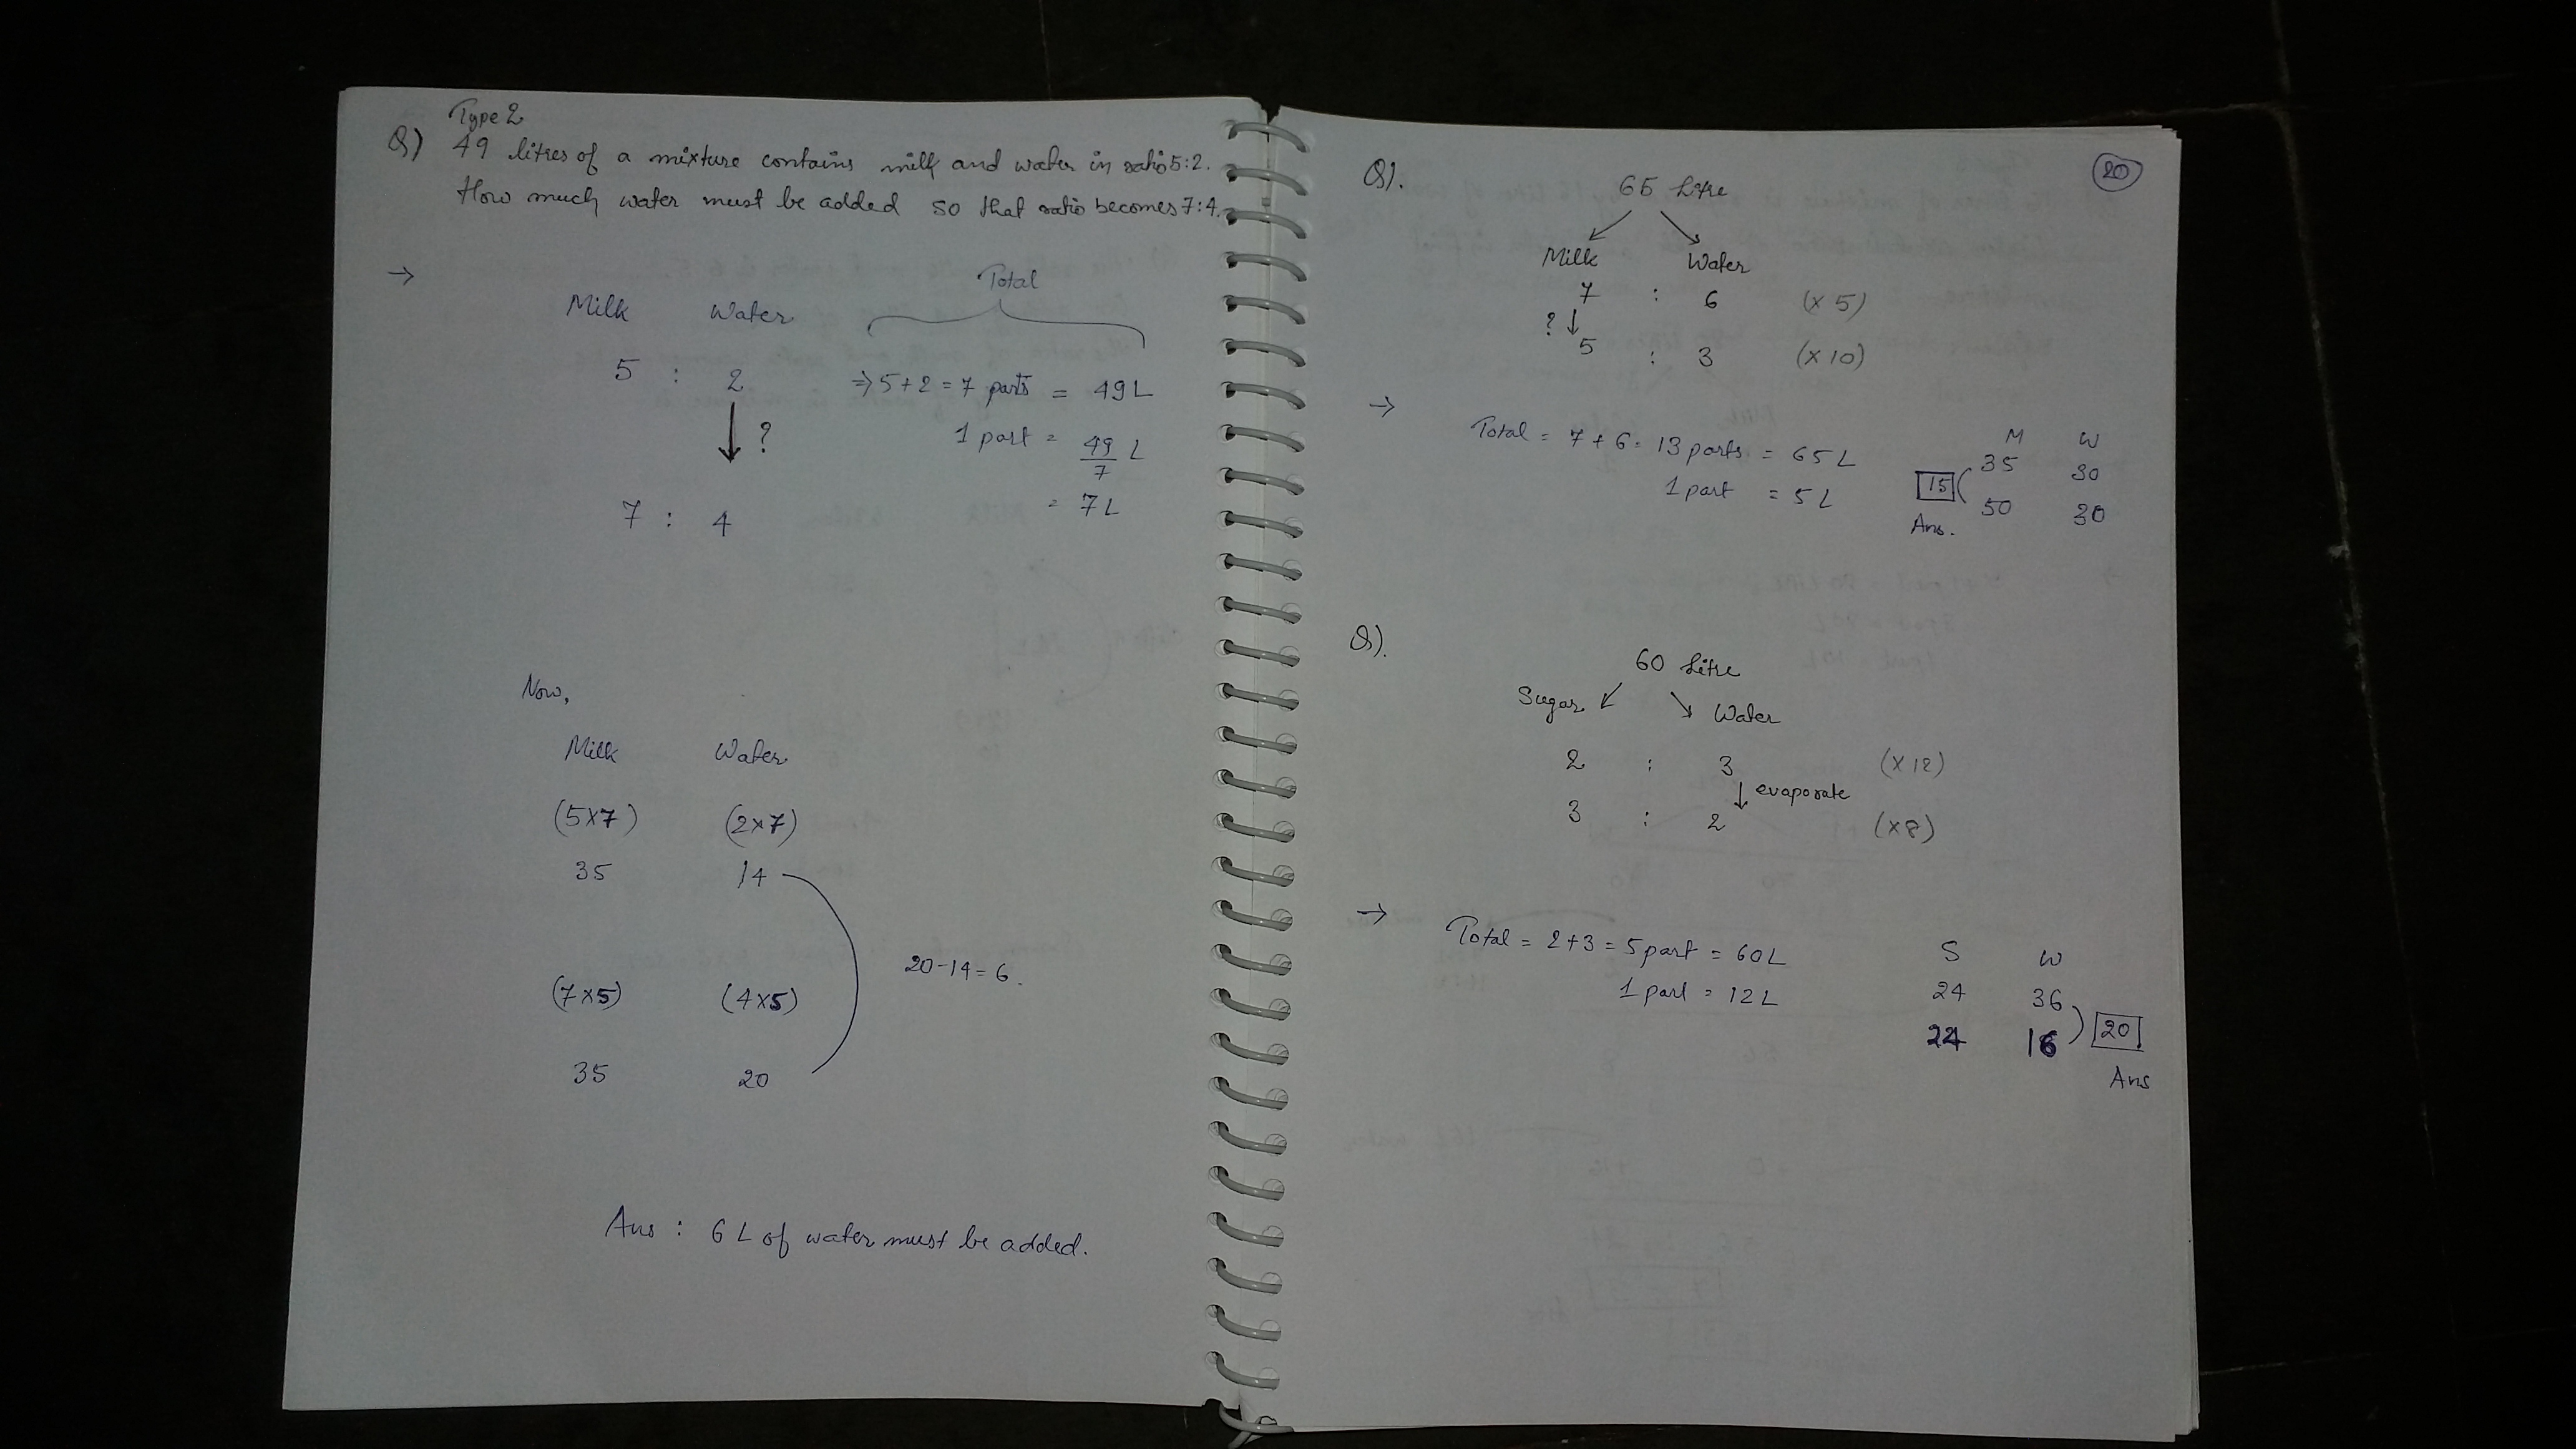 Type 2
Q) 49 litres of a mixture contains milk and water in ratio 5:2.
How much water must be added so that ratio becomes 7:4.
→
Total
Milk Water
5 : 2 ⇒ 5+2 = 7 parts = 49L
? 1 part = 49/7 L
= 7L
7 : 4
Now,
Milk Water
(5x7) (2x7)
35 14
20-14=6.
(7x5) (4x5)
35 20
Ans : 6 L of water must be added.
20
Q). 65 Litre
Milk Water
7 : 6 (x 5)
? ↓
5 : 3 (x 10)
→ Total = 7 + 6 = 13 parts = 65L
1 part = 5L
M W
15 ( 35 30
50 30
Ans.
Q). 60 Litre
Sugar Water
2 : 3 (x 12)
↓ evaporate
3 : 2 (x8)
→ Total = 2+3 = 5 part = 60L
1 part = 12L
S W
24 36
24 16 ) 20
Ans